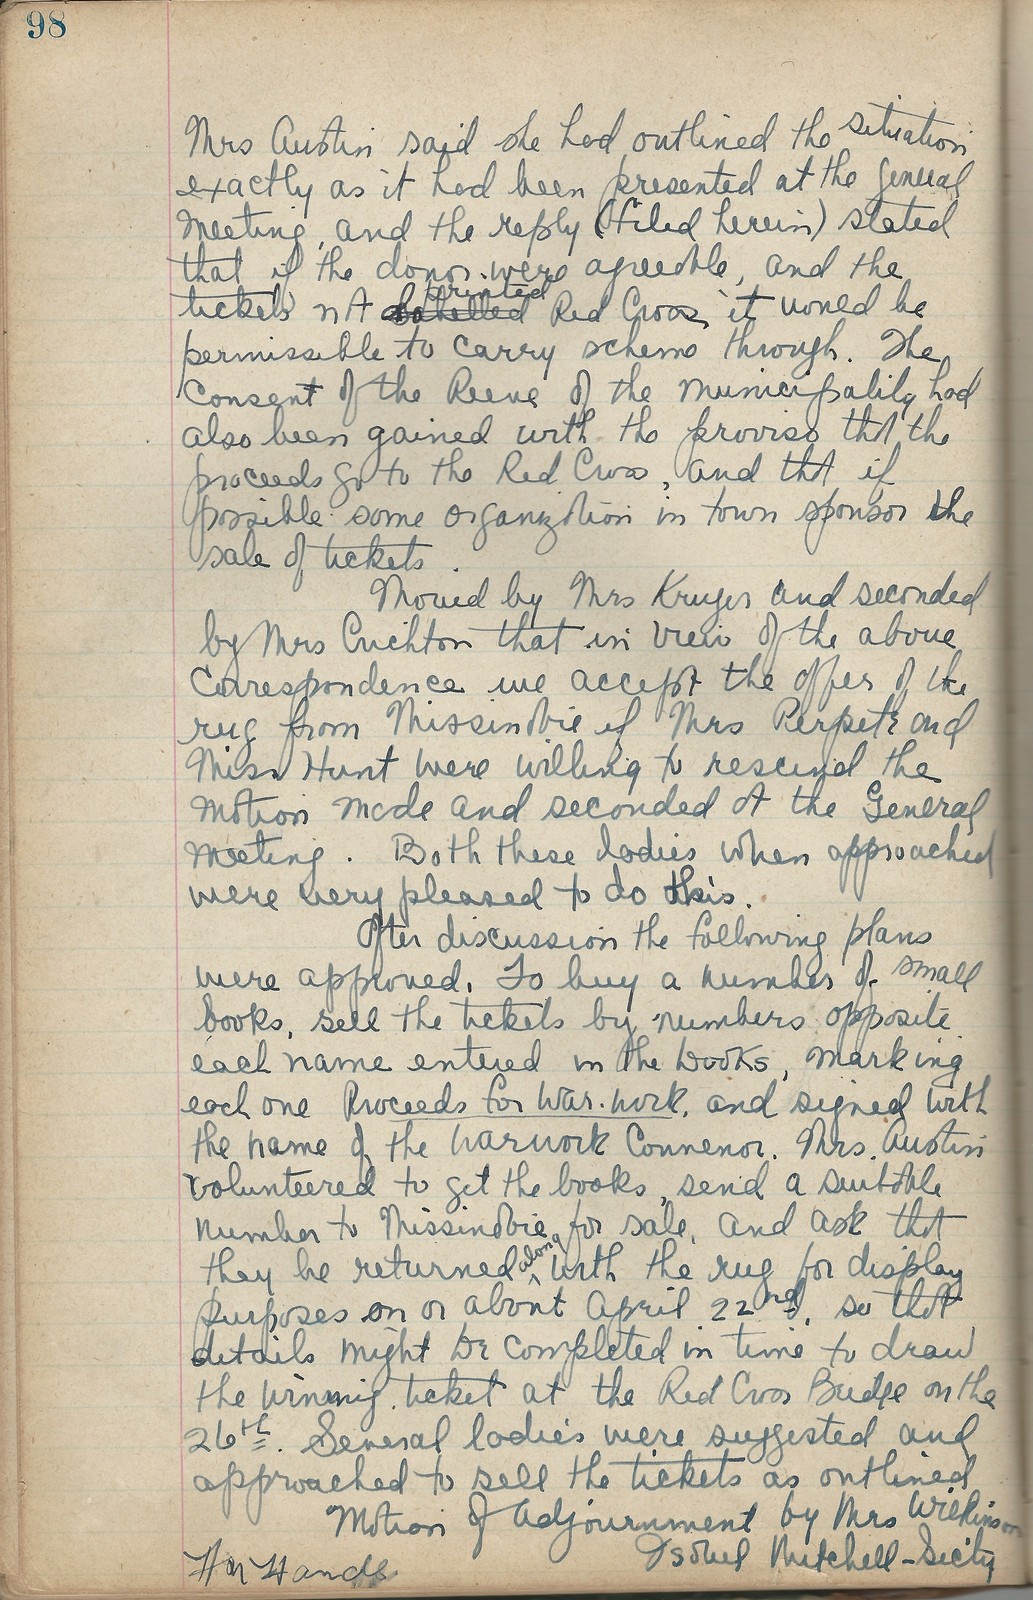 98
Mrs Austin said she had outlined the situation
exactly as it had been presented at the General
Meeting, and the reply (filed herein) stated
that if the donor were agreeable, and the
tickets not labelled printed Red Cross, it would be
permissible to carry scheme through. The
Consent of the Reeve of the Municipality had
also been gained with the proviso that the
proceeds go to the Red Cross, and that if
possible some organization in town sponsor the
sale of tickets.
Moved by Mrs Kruger and seconded
by Mrs Crichton that in view of the above
Correspondence we accept the offer of the
rug from Missinabie if Mrs Perpete and
Miss Hunt were willing to rescind the
Motion made and seconded at the General
Meeting. Both these ladies when approached
were very pleased to do this.
After discussion the following plans
were approved. To buy a number of small
books, sell the tickets by numbers opposite
each name entered in the books, marking
each one Proceeds for War work, and signed with
the name of the Warwork Convenor. Mrs. Austin
volunteered to get the books, send a suitable
number to Missinabie for sale, and ask that
they be returned along with the rug for display
purposes on or about April 22nd, so that
details might be completed in time to draw
the winning ticket at the Red Cross Bridge on the
26th. Several ladies were suggested and
approached to sell the tickets as outlined
Motion of Adjournment by Mrs Wilkinson
Isobel Mitchell - Sec'ty
Hands